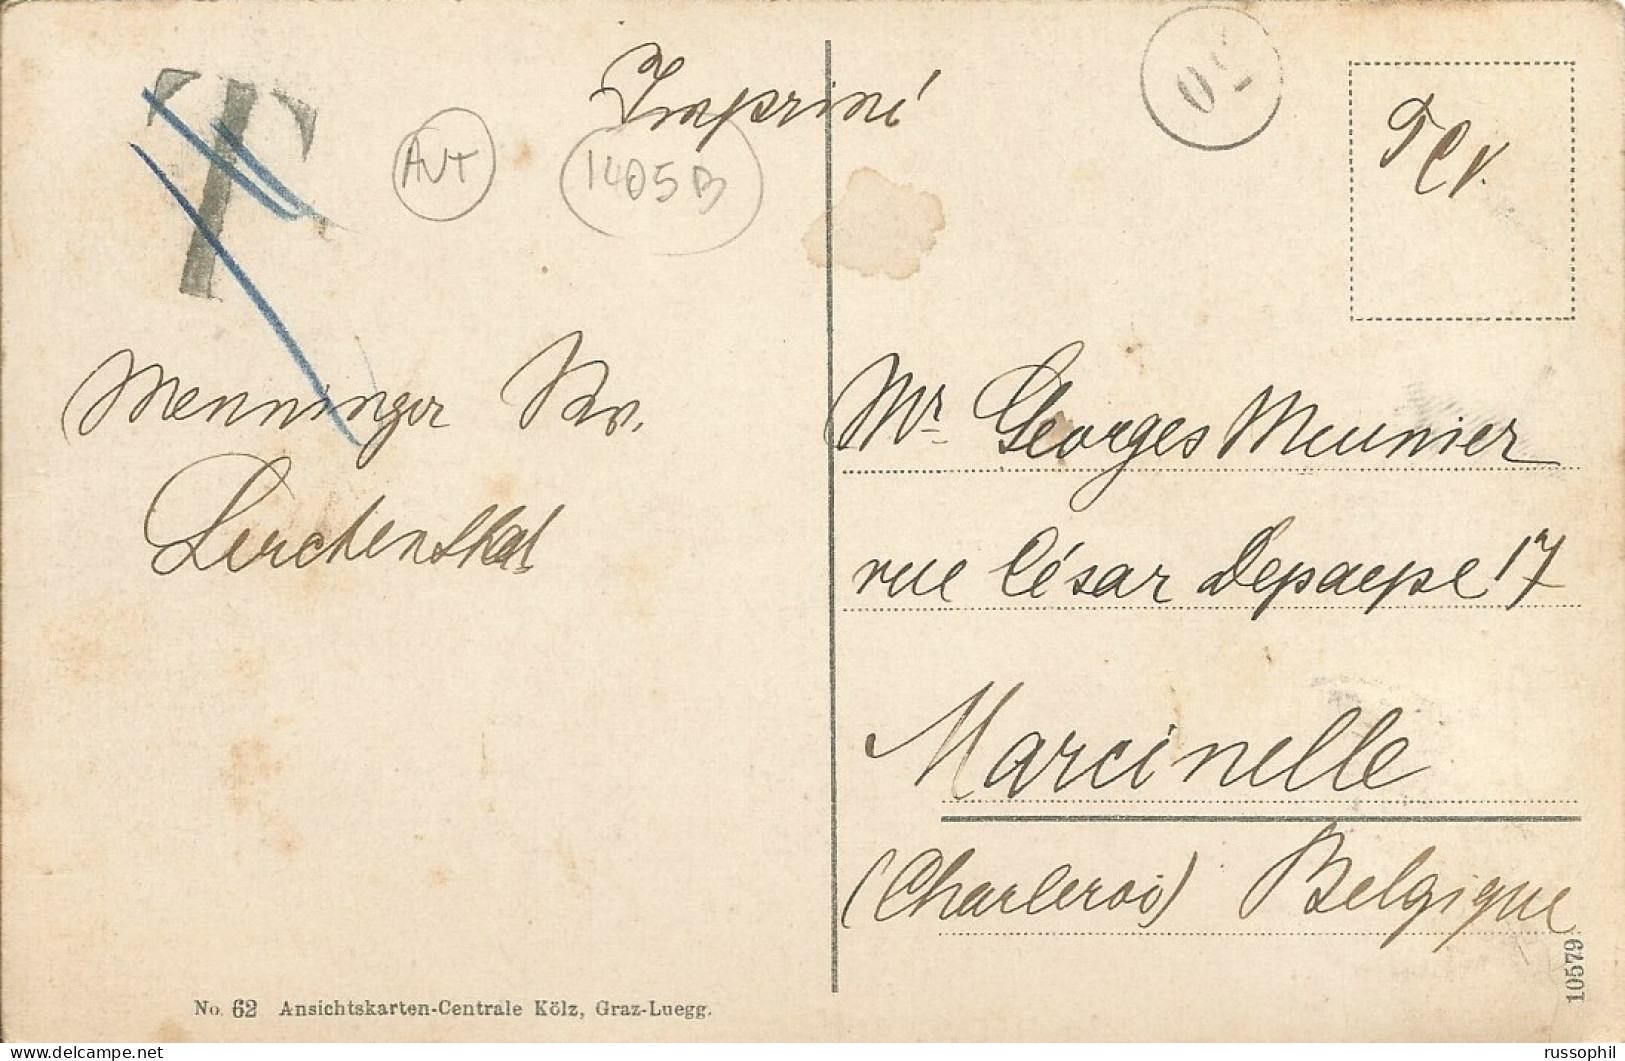 T
Imprimé
50
AUT
1405B
TCV.
Menninger
Lerchenthal
Mr Georges Meunier
rue César Depaepe 17
Marcinelle
(Charleroi) Belgique
No. 62 Ansichtskarten-Centrale Kölz, Graz-Luegg.
10579
www.delcampe.net
russophil